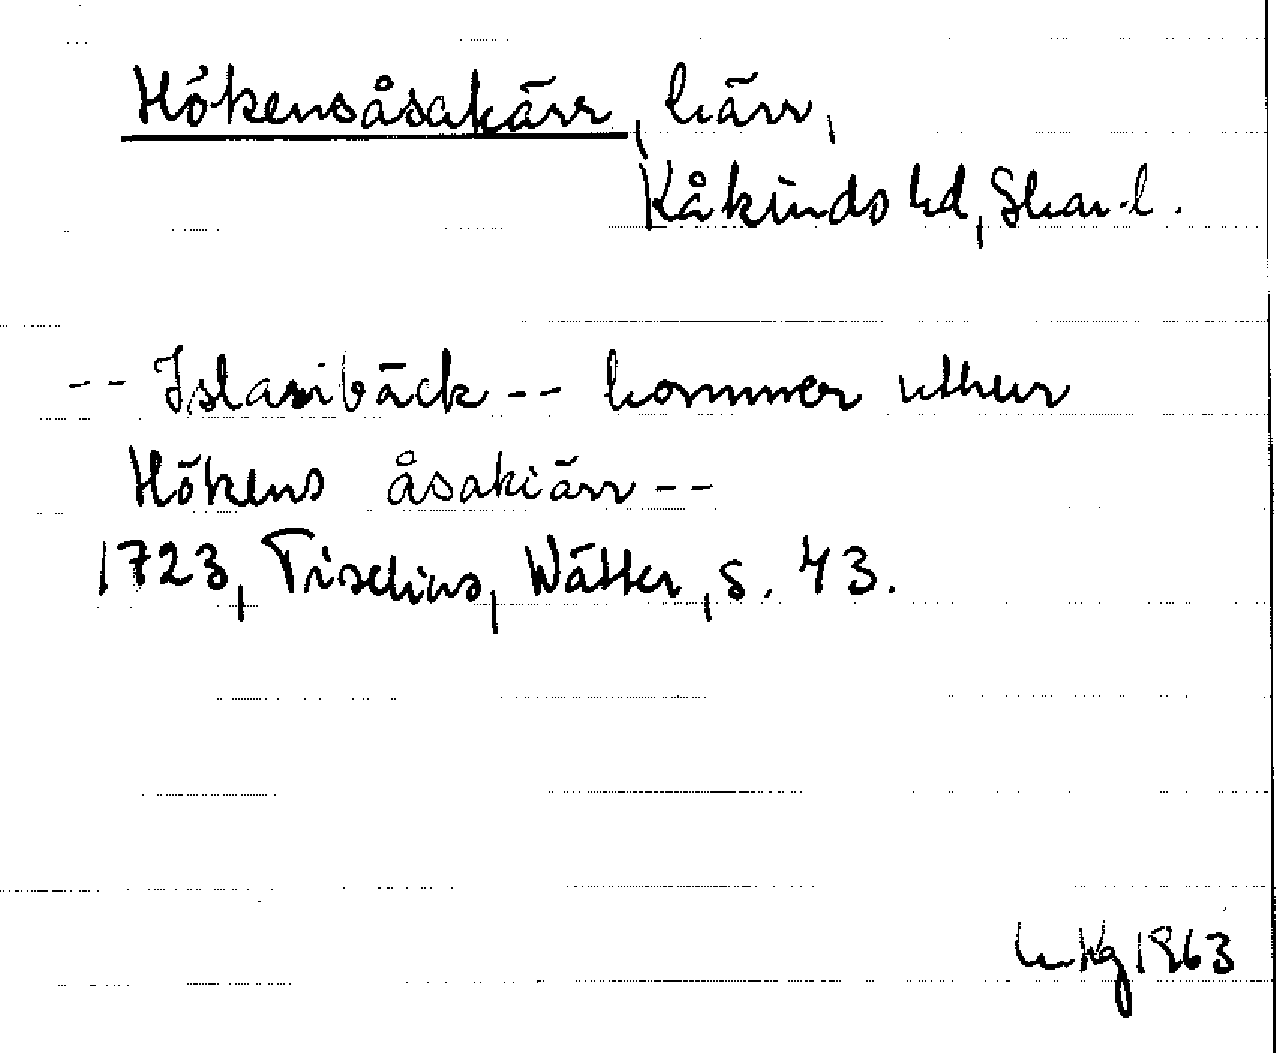 Hökensåsakärr, kärr,
Kåkinds hd, Skar. l.
-- Islanibäck -- kommer uthur
Hökens åsakiärr --
1723, Tiselius, Wätter, s. 43.
1963